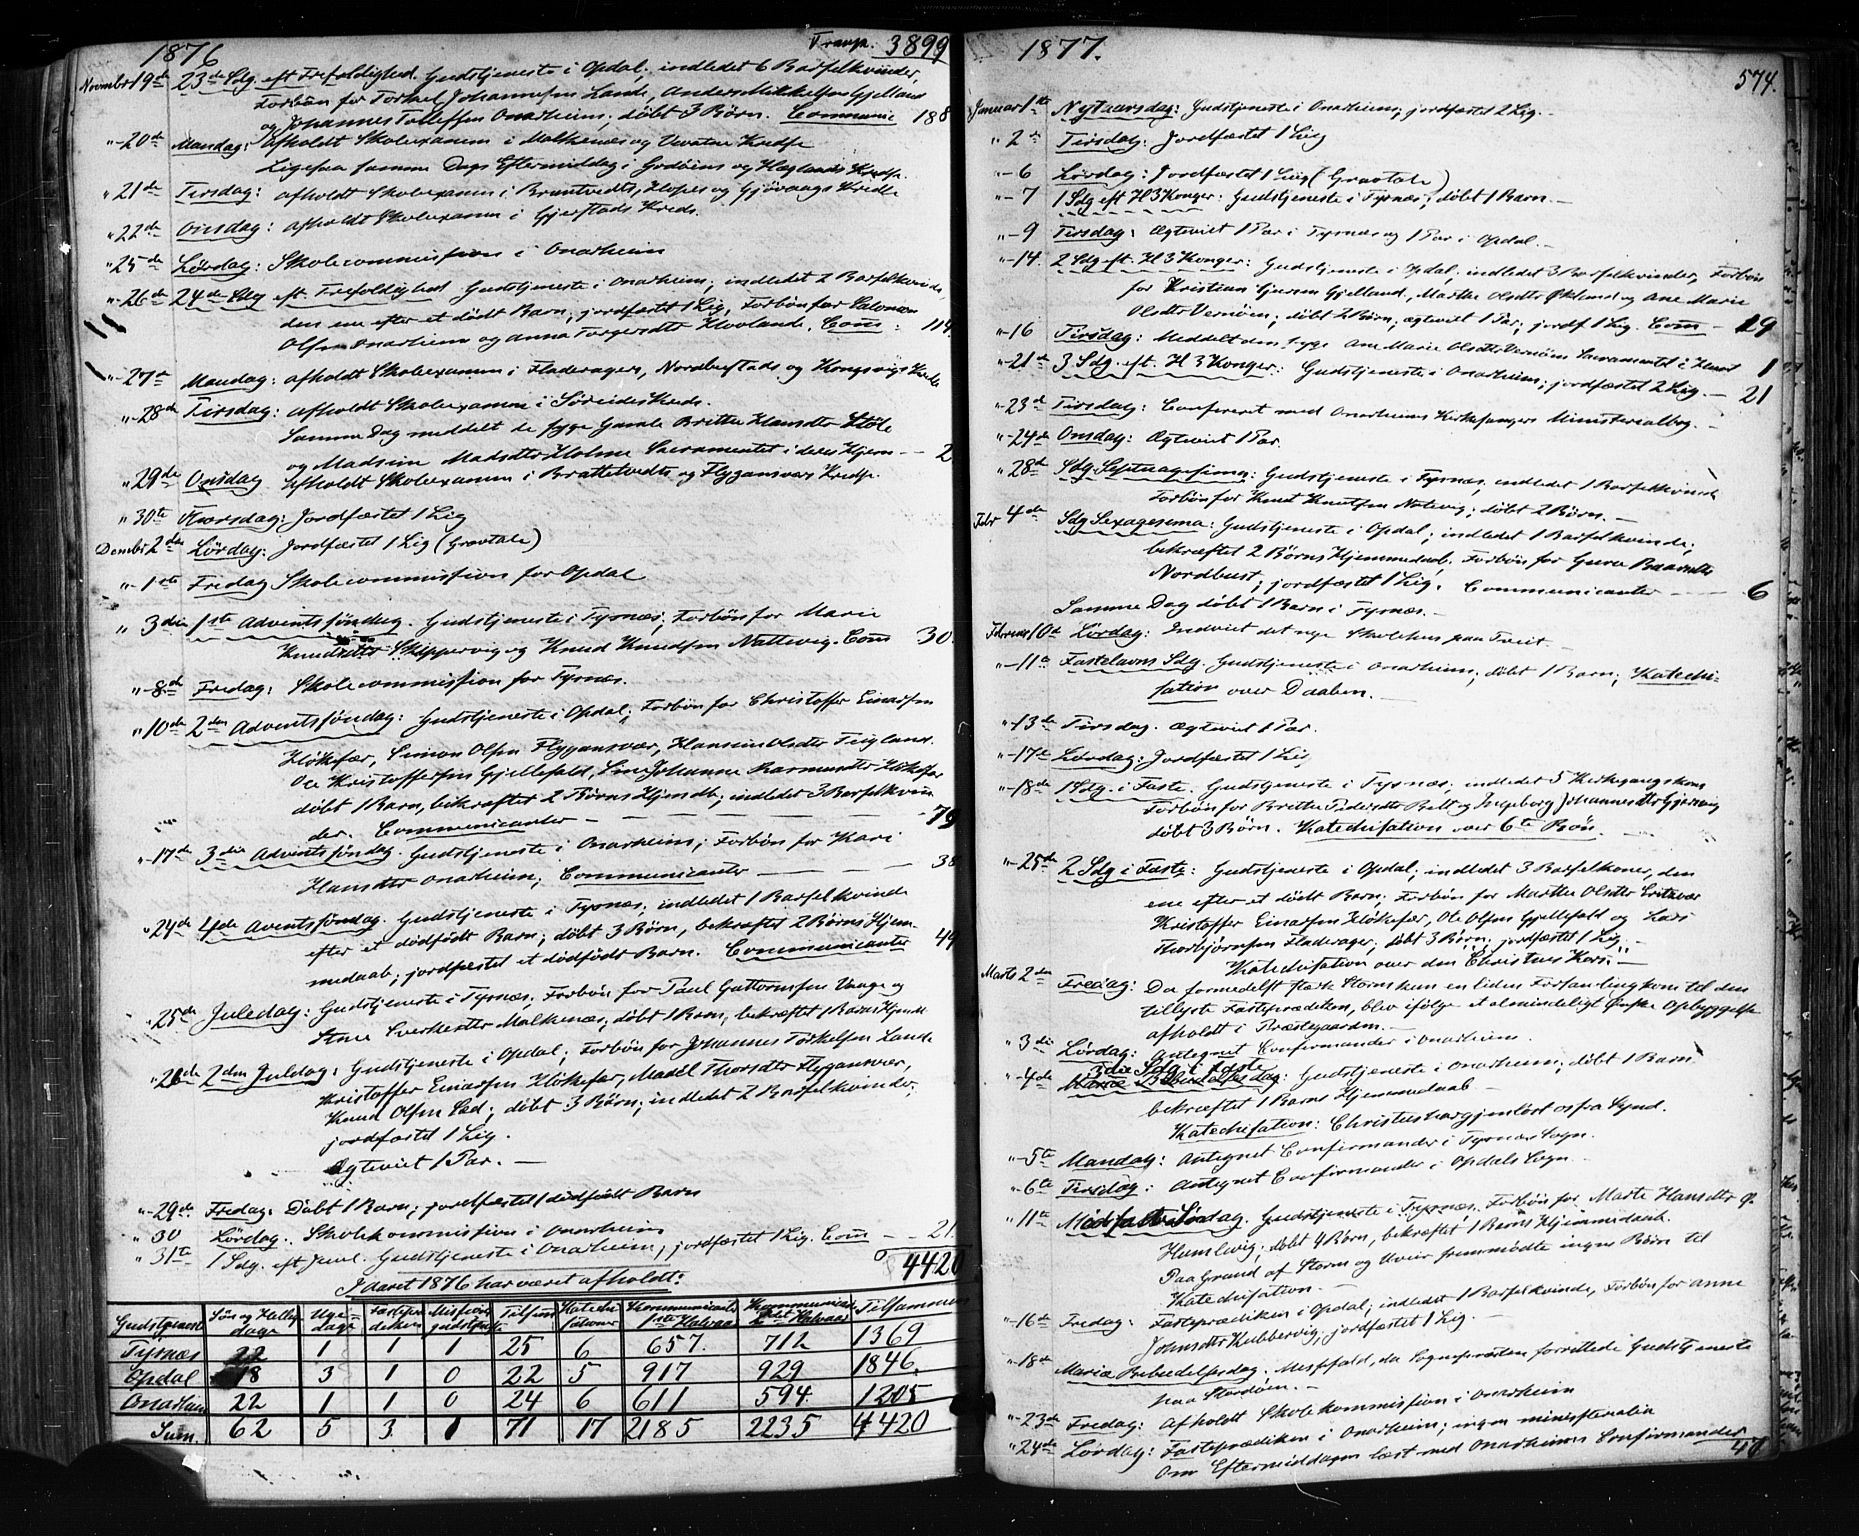 1876
Transp. 3899
Novembr 19de 23de Sdg. eft Trefoldighed. Gudstjeneste i Opdal; indledet 6 Barselkvinder,
Forbön for Torkel Johannessen Lande, Anders Mikkelsen Gjelland
og Johannes Tollefsen Onarheim; döbt 3 Börn. Communic 188
"-20de Mandag: afholdt Skolexamen i Malkenes og Kredse
Ligesaa samme Dags Eftermiddag i Godöens og Haglands Kredse.
"21de Tirsdag: afholdt Skolexamen i Brantvedts, Hopes og Gjövaags Kredse
"22de Onsdag: afholdt Skolexamen i Gjerstads Kreds.
"25de Lördag: Skolecommission i Onarheim
"-26de 24de Sdg eft. Trefoldighed Gudstjeneste i Onarheim; indledet 2 Barselkvinde,
den ene efter et dödt Barn; jordfæstet 1 Lig, Forbön for Salomon
Olsen Onarheim og Anna Torgersdtr Hovlande. Com: 114.
"-27de Mandag: afholdt Skolexamen i Fladeragers, Nordbustads og Kongsvigs Kredse
"-28de Tirsdag: afholdt Skolexamen i Söreides Kreds.
Samme Dag meddelt de syge Gamle Brithe Hansdtr Stöle
og Madsine Madsdtr Holme Sacramentet i deres Hjem -- 2
"29de Onsdag afholdt Skolexamen i Brattetvedts og Flygansvær Kredse.
"30te Thorsdag: Jordfæstet 1 Lig
Decmbr 2den Lördag: Jordfæstet 1 Lig (Gravtale)
"-1ste Fredag Skolecommission for Opdal
" 3die 1ste Adventssöndag. Gudstjeneste i Tysnæs; Forbön for Marie
Knudsdtr Skippervig og Knud Knudsen Nattevig. Com 30.
"-8de Fredag: Skolecommission for Tysnæs.
"10de 2den Adventssöndag: Gudstjeneste i Opdal; Forbön for Christoffer Einarsen
Hökefær, Simon Olsen Flygansvær, Hansine Olsdtr Teigland.
Ole Kristoffersen Gjellefald, Sine Johanne Rasmusdtr Hökefær
döbt 1 Barn, bekræftet 2 Börns Hjemdb; indledet 3 Barselkvin
der. Communicanter - - - - - - - 79
"-17de 3die Adventssöndag. Gudstjeneste i Onarheim; Forbön for Kari
Hansdtr Onarheim; Communicanter - - 38
"24de 4de Aventssöndag. Gudstjeneste i Tysnæs, indledet 1 Barselkvinde
efter et dödfödt Barn; döbt 3 Börn, bekræftet 2 Börns Hjem-
medaab; jordfæstet et dödfödt Barn. Communicanter 49
"25de Juledag: Gudstjeneste i Tysnæs, Forbön for Paul Guttormsen Vaage og
Stine Sverkesdtr Malkenæs; döbt 1 Barn, bekræftet 1 Barns Hjemdb
"26de 2den Juledag: Gudstjeneste i Opdal; Forbön for Johannes Torkelsen Lande
Kristoffer Einarsen Hökefær, Madel Thorsdtr Flygansvær,
Knud Olsen Lad; döbt 3 Börn; indledet 2 Barselkvinder;
jordfæstet 1 Lig.
Ægteviet 1 Par.
"-29de Fredag: Döbt 1 Barn; jordfæstet 1 dödfödt Barn
" 30 Lördag. Skolekommission i Onarheim
" 31te 1 Sdg. eft Juul. Gudstjeneste i Onarheim, jordfæstet 1 Lig. Com - - 21.
4420
I aaret 1876 har været afholdt:
Gudstjeneste Søn og Hellig dage Uge-dage Fasteprædiken Missionsgudstjeneste Tilsam Katechisationer Kommunicanter 1ste Halvaar Kommunicanter 2det Halvaar Tilsammen
Tysnæs 22 1 1 1 25 6 657. 712 1369
Opdal 18 3 1 0 22 5 917 929 1846.
Onarheim 22 1 1 0 24 6 611 594 1205
Sum. 62 5 3 1 71 17 2185 2235 4420
1877.
574.
Januar 1ste Nytaarsdag: Gudstjeneste i Onarheim; jordfæstet 2 Lig.
"- 2de Tirsdag: Jordfæstet 1 Lig
"- 6 Lördag: Jordfæstet 1 Lig (Gravtale)
"- 7 1 Sdg eft H 3 Konger: Gudstjeneste i Tysnæs; döbt 1 Barn.
"- 9 Tirsdag: Ægteviet 1 Par i Tysnæs og 1 Par i Opdal.
"-14. 2 Sdg eft. H 3 Konger: Gudstjeneste i Opdal, indledet 3 Barselkvinder, Forbön
for Kristian Gjelland, Marthe Olsdtr Öklund og Ane Marie
Olsdtr Vernöen; döbt 2 Börn; ægteviet 1 Par; jordf 1 Lig. Com - 29
"-16 Tirsdag: Meddelt den syge Ane Marie Olsdtr Vernöen Sacramentet i Huset 1
"-21de 3 Sdg. eft. H 3 Konger: Gudstjeneste i Onarheim; jordfæstet 2 Lig. - 21
"-23de Tirsdag: Confereret med Onarheims Kirkesangers Ministerialbog.
"-24de Onsdag: Ægteviet 1 Par.
"28de Sdg. Septuagesima: Gudstjeneste i Tysnæs, indledet 1 Barselkvinde
Forbön for Knut Knutsen Natevig; döbt 2 Börn.
Febr 4de Sdg Sexagesima: Gudstjeneste i Opdal; indledet 1 Barselkvinde;
bekræftet 2 Börns Hjemmedaab; Forbön for Guro Baardsdtr
Nordbust; jordfæstet 1 Lig. Communicanter - - 6
Samme Dag döbt 1 Barn i Tysnæs.
Februar 10de Lördag: Indviet det nye Skolehus paa Tveit
"-11te Fastelavns Sdg. Gudstjeneste i Onarheim; döbt 1 Barn; Katechi-
sation over Daaben.
"-13de Tirsdag. Ægteviet 1 Par.
"-17de Lördag: Jordfæstet 1 Lig
"-18de 1 Sdg. i Faste. Gudstjeneste i Tysnæs, indledet 5 Kirkegangskoner
Forbön for Brithe Pedersdtr Belt og Ingeborg Johannesdtr Gjersvig
döbt 3 Börn. Katechisation over 6te Bön.
"-25de 2 Sdg i Faste: Gudstjeneste i Opdal; indledet 3 Barselkoner, den
ene efter et dödt Barn; Forbön for Marthe Olsdtr
Kristoffer Einarsen Hökefær, Ole Olsen Gjellefald og Lars
Thorbjörnsen Fladerager; döbt 3 Börn; jordfæstet 1 Lig.
Katechisation over den Christnes Kors.
Marts 2den Fredag: Da formedelst stærk Storm kun en liden Forsamling kom til den
tillyste Fasteprædiken, blev ifölge et almindeligt Önske Opbyggelse
afholdt i Præstegaarden.
" 3die Lördag: Antegnet Confirmander i Onarheim.
3die Sdg i Faste
"-4de Mariæ Bebudelsesdag: Gudstjeneste i Onarheim; döbt 1 Barn
bekræftet 1 Barns Hjemmedaab
Katechisation: Christus har gjenlöst os fra Synd.
"-5te Mandag: Antegnet Confirmander i Tysnæs Sogn.
"-6te Tirsdag: Antegnet Confirmander i Opdals Sogn
"11te Midfaste Söndag. Gudstjeneste i Tysnæs. Forbön for Marte Hansdtr
Humlevig; döbt 4 Börn, bekræftet 1 Barns Hjemmedaab.
Paa Grund af Storm og Uveir fremmödte ingen Börn til
Katechisation.
"-16de Fredag: Fasteprædiken i Opdal; indledet 1 Barselkvinde, Forbön for Anne
Johnsdtr Kubbervig, jordfæstet 1 Lig.
"-18de Mariæ Bebudelsesdag. Messefald, da Sognepræsten forrettede Gudstjeneste
paa Stordöen.
"-23de Fredag: Afholdt Skolekommission i Onarheim
"24de Lördag: Fasteprædiken i Onarheim; ingen ministerialia
Om Eftermiddagen læst med Onarheims Confirmander
47